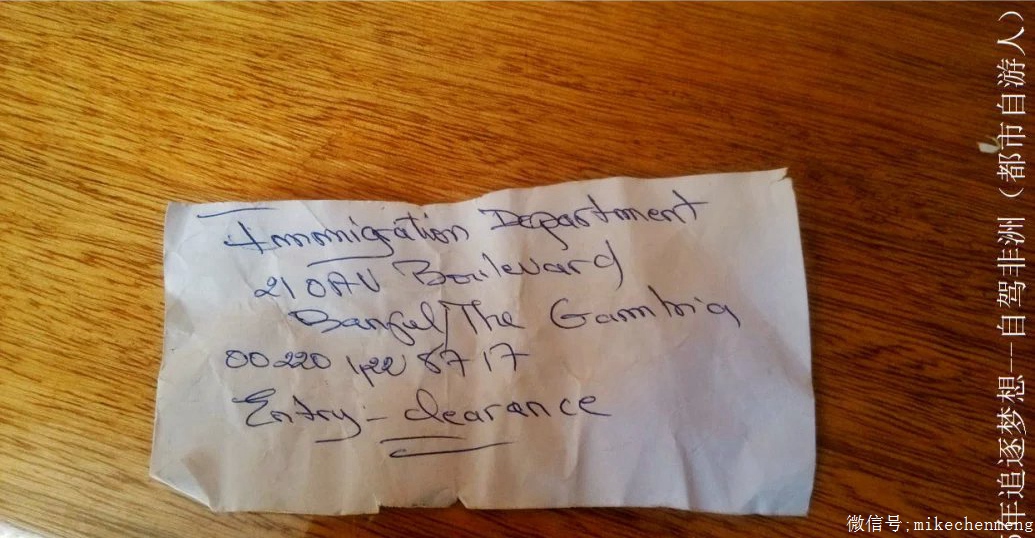 Immigration Department
21 OAU Boulevard
Banjul/The Gambia
00220 422 8717
Entry - clearance
5年追逐梦想--自驾非洲（都市自游人）
微信号;mikechenmeng